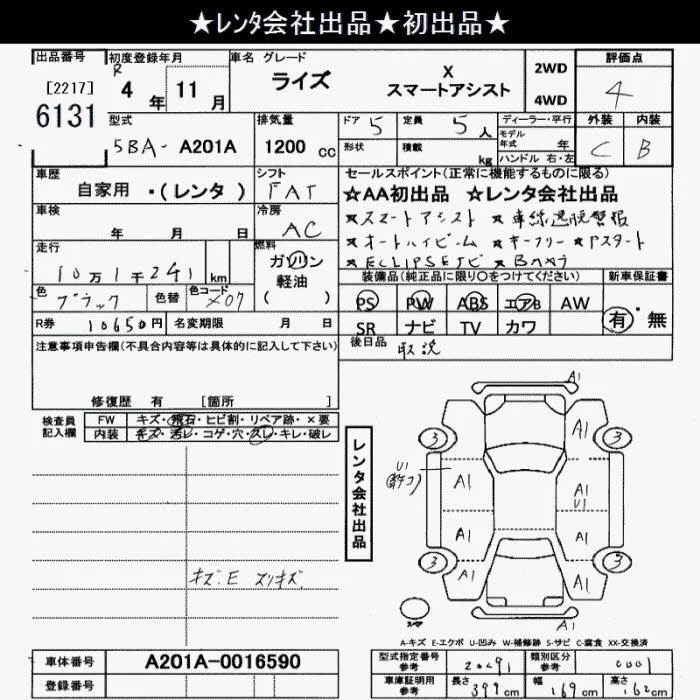 ★レンタ会社出品★初出品★
出品番号 初度登録年月 車名 グレード 評価点
[2217] R 4年 11月 ライズ X スマートアシスト 2WD 4WD 4
6131 型式 5BA-A201A 排気量 1200cc
ドア 5 定員 5人 ディーラー・平行 外装 内装
形状 積載 kg モデル年式 年 ハンドル 右・左 C B
車歴 自家用・(レンタ) シフト FAT
セールスポイント(正常に機能するものに限る)
★AA初出品 ★レンタ会社出品
★スマートアシスト ★車線逸脱警報
★オートハイビーム ★キーフリー ★Pスタート
車検 年 月 日 冷房 AC
走行 10万1千241km 燃料 ガソリン 軽油 ( )
装備品(純正品に限り〇をつけてください) 新車保証書
色 ブラック 色替 色コード X07
PS PW ABS エアB AW 有・無
SR ナビ TV カワ
R券 10650円 名変期限 月 日
後日品 取説
注意事項申告欄(不具合内容等は具体的に記入して下さい)
修復歴 有 [箇所 ]
検査員記入欄 FW キズ・飛石・ヒビ割・リペア跡・×要
内装 キズ・汚レ・コゲ・穴・スレ・キレ・破レ
キズ.E スリキズ
レンタ会社出品
A1
3 A1 3
U1 A1 A1 U1
A1 A1
3 A1 A1 3
A1
A-キズ E-エクボ U-凹み W-補修跡 S-サビ C-腐食 XX-交換済
車体番号 A201A-0016590
登録番号
型式指定番号 参考 20291 類別区分 参考 0001
車庫証明用 参考 長さ 399cm 幅 169cm 高さ 162cm